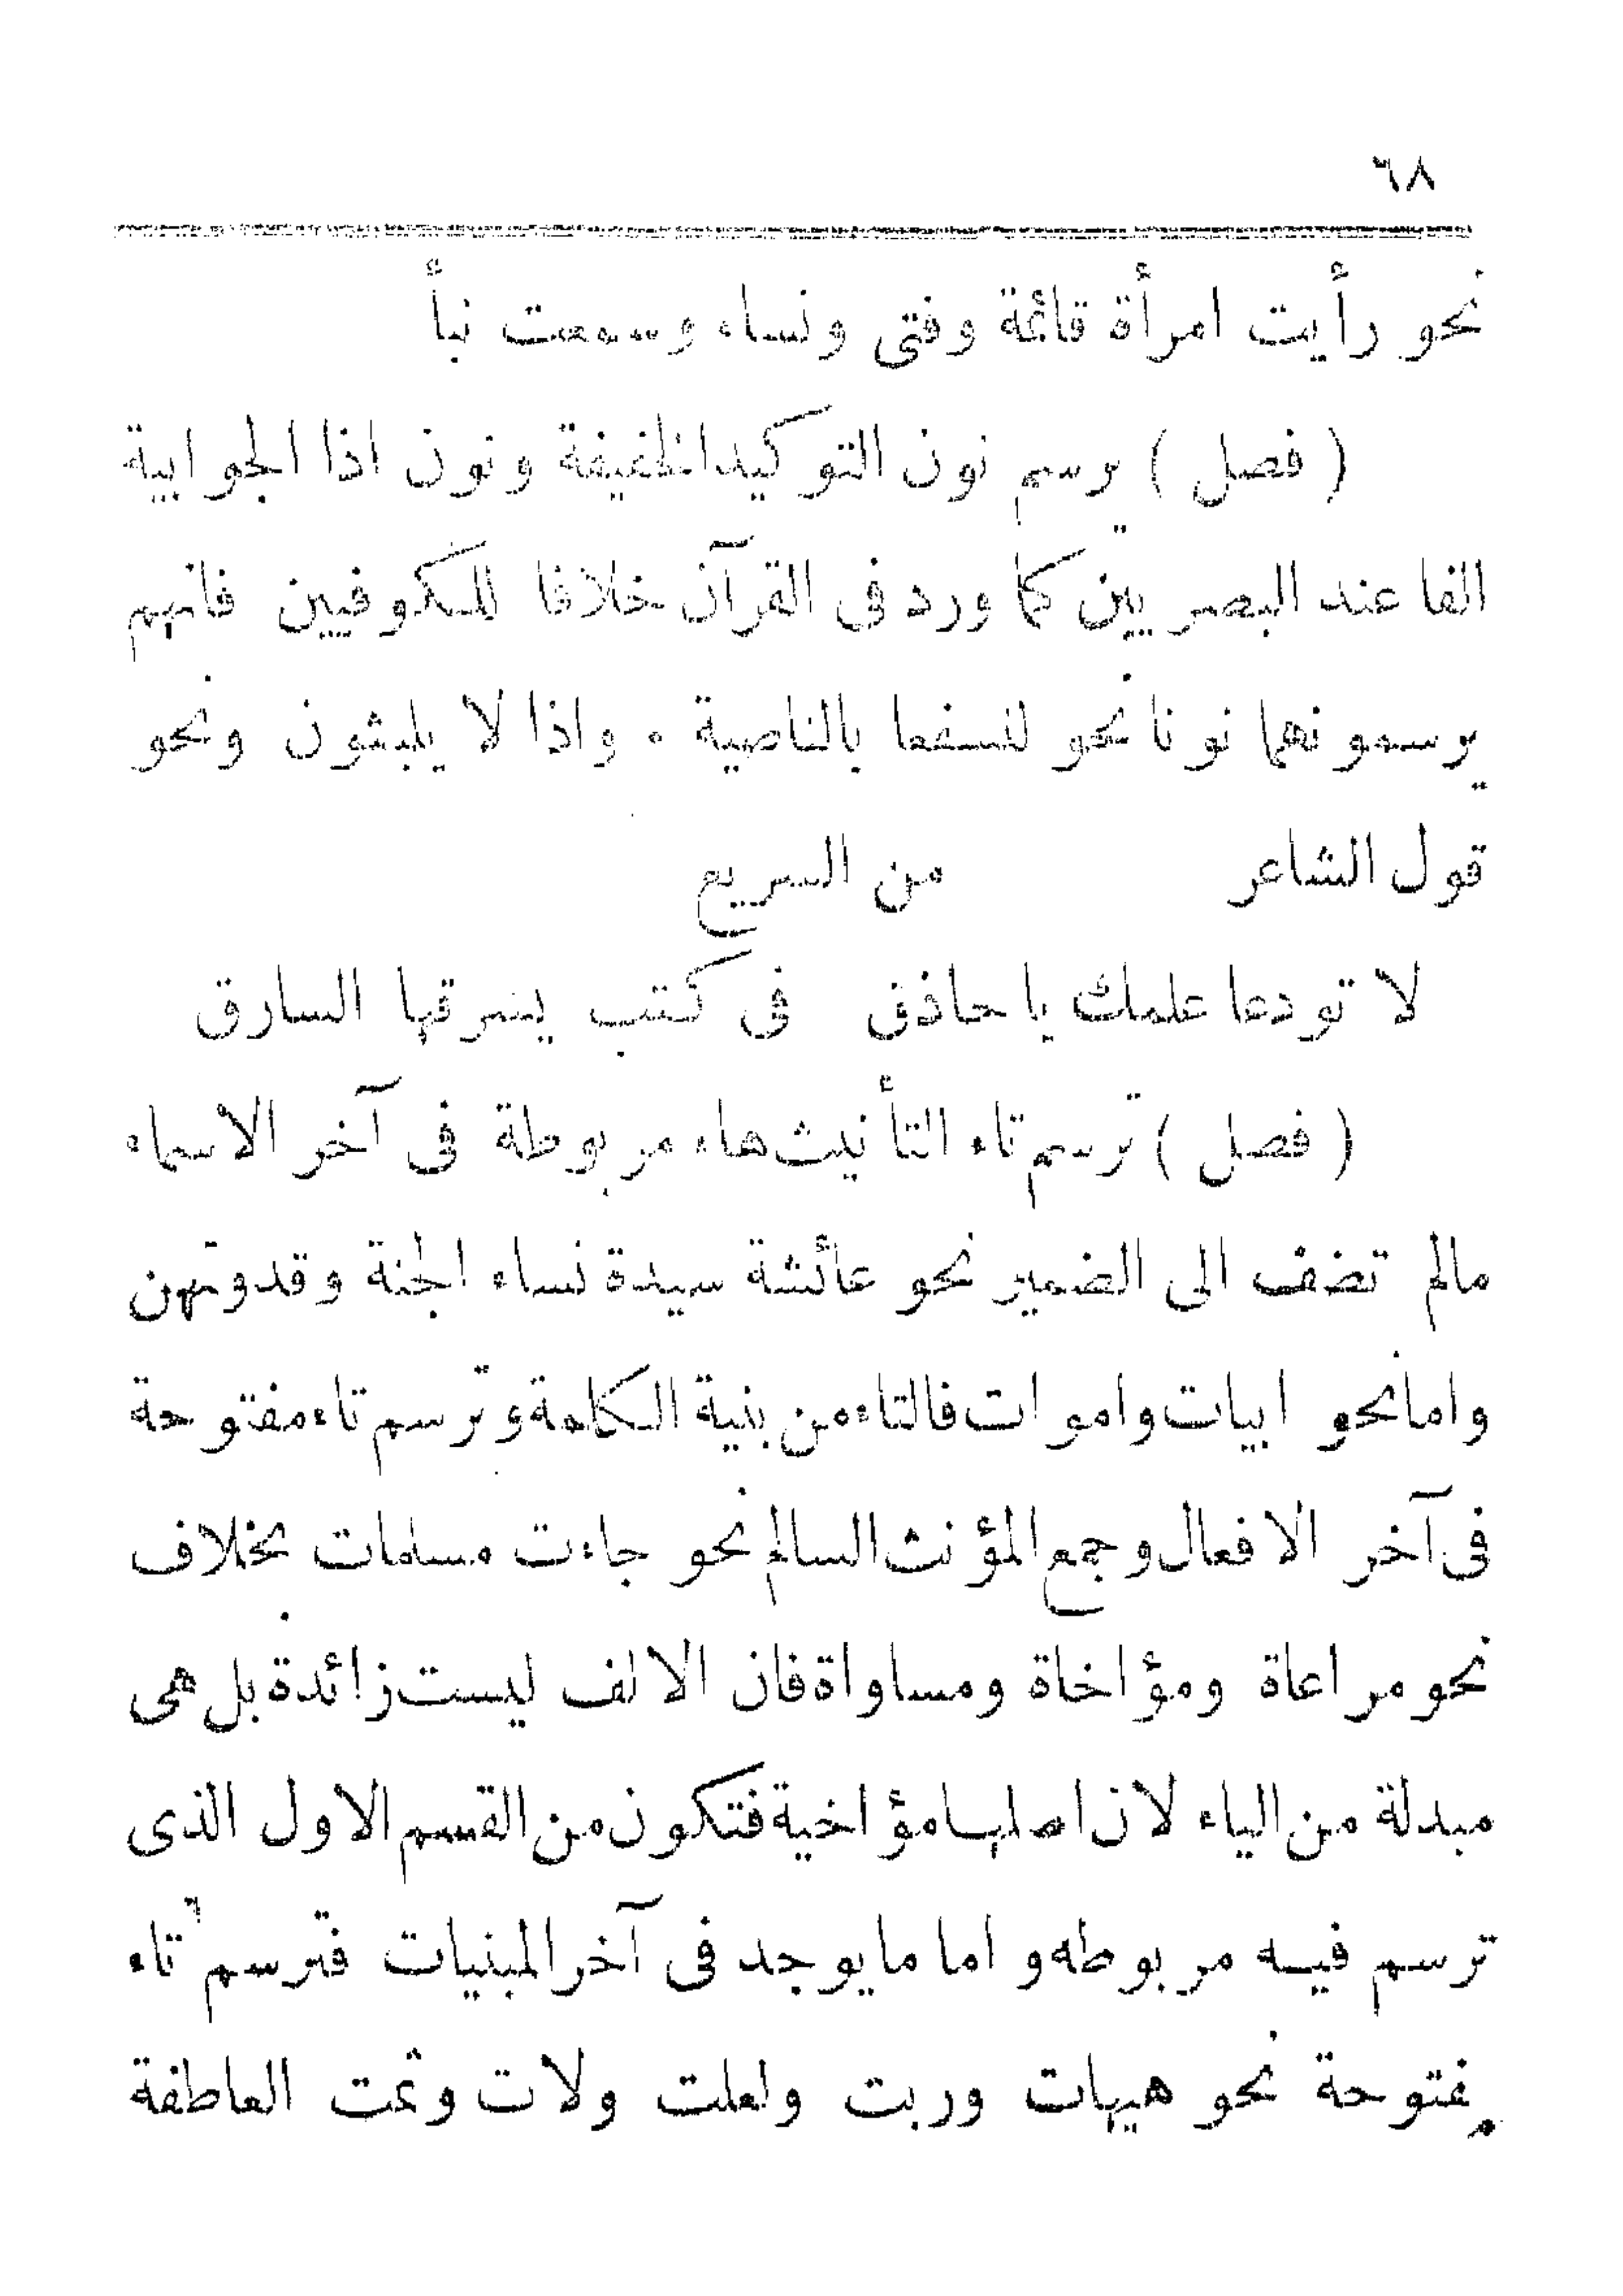 ٦٨
نحو رأيت امرأة قائمة وفتى ونساء وسمعت نبأ
( فصل ) يرسم نون التوكيد الخفيفة ونون اذا الجوابية
الفا عند البصريين كما ورد فى القرآن خلافا للكوفيين فانهم
يرسمونهما نونا نحو لنسفعا بالناصية . واذا لا يلبثون ونحو
قول الشاعر من السريع
لا تودعا علمك يا حاذق فى كتب يسرقها السارق
( فصل ) ترسم تاء التأنيث هاء مربوطة فى آخر الاسماء
مالم تضف الى الضمير نحو عائشة سيدة نساء الجنة وقدوتهن
واما نحو ابيات واموات فالتاء من بنية الكلمة وترسم تاء مفتوحة
فى آخر الافعال وجمع المؤنث السالم نحو جاءت مسلمات بخلاف
نحو مراعاة ومؤاخاة ومساواة فان الالف ليست زائدة بل هى
مبدلة من الياء لان اصلها مؤاخية فتكون من القسم الاول الذى
ترسم فيه مربوطه و اما ما يوجد فى آخر المبنيات فترسم تاء
مفتوحة نحو هيهات وربت ولعلت ولات وثمت العاطفة